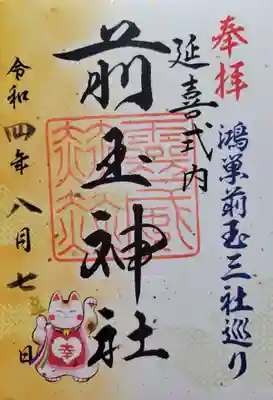 奉拝
鴻巣前玉三社巡り
延喜式内
前玉神社
令和四年八月七日
幸